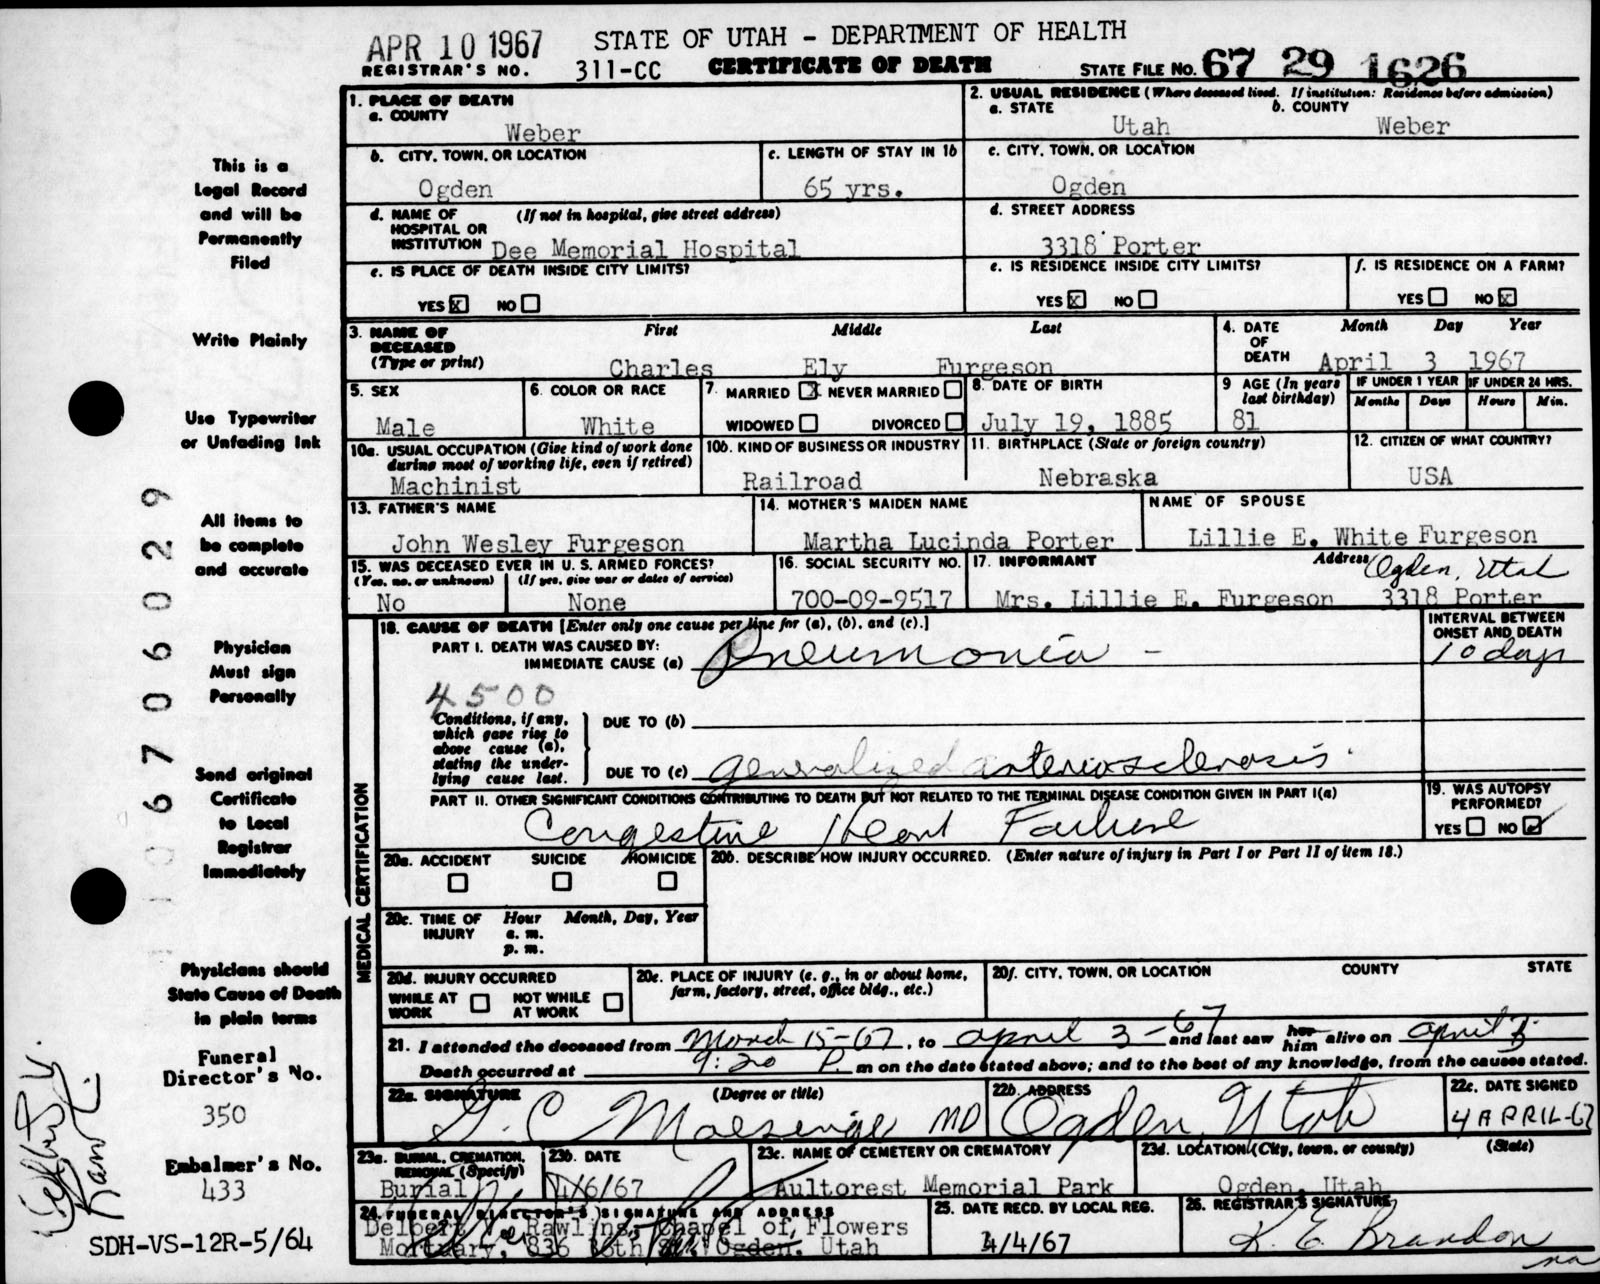 APR 10 1967
STATE OF UTAH - DEPARTMENT OF HEALTH
REGISTRAR'S NO. 311-CC CERTIFICATE OF DEATH STATE FILE NO. 67 29 1626
1. PLACE OF DEATH
a. COUNTY
Weber
2. USUAL RESIDENCE (Where deceased lived. If institution: Residence before admission)
a. STATE b. COUNTY
Utah Weber
b. CITY, TOWN, OR LOCATION
Ogden
c. LENGTH OF STAY IN 1b
65 yrs.
c. CITY, TOWN, OR LOCATION
Ogden
d. NAME OF HOSPITAL OR INSTITUTION (If not in hospital, give street address)
Dee Memorial Hospital
d. STREET ADDRESS
3318 Porter
e. IS PLACE OF DEATH INSIDE CITY LIMITS?
YES X NO
e. IS RESIDENCE INSIDE CITY LIMITS?
YES X NO
f. IS RESIDENCE ON A FARM?
YES NO X
3. NAME OF DECEASED (Type or print) First Middle Last
Charles Ely Furgeson
4. DATE OF DEATH Month Day Year
April 3 1967
5. SEX
Male
6. COLOR OR RACE
White
7. MARRIED X NEVER MARRIED
WIDOWED DIVORCED
8. DATE OF BIRTH
July 19, 1885
9 AGE (In years last birthday)
81
IF UNDER 1 YEAR IF UNDER 24 HRS.
Months Days Hours Min.
10a. USUAL OCCUPATION (Give kind of work done during most of working life, even if retired)
Machinist
10b. KIND OF BUSINESS OR INDUSTRY
Railroad
11. BIRTHPLACE (State or foreign country)
Nebraska
12. CITIZEN OF WHAT COUNTRY?
USA
13. FATHER'S NAME
John Wesley Furgeson
14. MOTHER'S MAIDEN NAME
Martha Lucinda Porter
NAME OF SPOUSE
Lillie E. White Furgeson
15. WAS DECEASED EVER IN U. S. ARMED FORCES?
(Yes, no, or unknown) (If yes, give war or dates of service)
No None
16. SOCIAL SECURITY NO.
700-09-9517
17. INFORMANT Address Ogden, Utah
Mrs. Lillie E. Furgeson 3318 Porter
MEDICAL CERTIFICATION
18. CAUSE OF DEATH [Enter only one cause per line for (a), (b), and (c).]
INTERVAL BETWEEN ONSET AND DEATH
PART I. DEATH WAS CAUSED BY:
IMMEDIATE CAUSE (a) Pneumonia - 10 days
4500
Conditions, if any, which gave rise to above cause (a), stating the underlying cause last.
DUE TO (b)
DUE TO (c) generalized arteriosclerosis
PART II. OTHER SIGNIFICANT CONDITIONS CONTRIBUTING TO DEATH BUT NOT RELATED TO THE TERMINAL DISEASE CONDITION GIVEN IN PART I(a)
Congestive Heart Failure
19. WAS AUTOPSY PERFORMED?
YES NO
20a. ACCIDENT SUICIDE HOMICIDE
20b. DESCRIBE HOW INJURY OCCURRED. (Enter nature of injury in Part I or Part II of item 18.)
20c. TIME OF INJURY Hour Month, Day, Year
a. m.
p. m.
20d. INJURY OCCURRED
WHILE AT WORK NOT WHILE AT WORK
20e. PLACE OF INJURY (e. g., in or about home, farm, factory, street, office bldg., etc.)
20f. CITY, TOWN, OR LOCATION COUNTY STATE
21. I attended the deceased from March 15-67, to april 3-67 and last saw her him alive on april 3
Death occurred at 9:20 P. m on the date stated above; and to the best of my knowledge, from the causes stated.
22a. SIGNATURE (Degree or title)
MD
22b. ADDRESS
Ogden, Utah
22c. DATE SIGNED
4 APRIL-67
23a. BURIAL, CREMATION, REMOVAL (Specify)
Burial
23b. DATE
4/6/67
23c. NAME OF CEMETERY OR CREMATORY
Aultorest Memorial Park
23d. LOCATION (City, town, or county) (State)
Ogden, Utah
24. FUNERAL DIRECTOR'S SIGNATURE AND ADDRESS
Delbert V. Rawlins, Chapel of Flowers
Mortuary, 836 36th St. Ogden, Utah
25. DATE RECD. BY LOCAL REG.
4/4/67
26. REGISTRAR'S SIGNATURE
K. E. Brandon
This is a
Legal Record
and will be
Permanently
Filed
Write Plainly
Use Typewriter
or Unfading Ink
All items to
be complete
and accurate
Physician
Must sign
Personally
Send original
Certificate
to Local
Registrar
Immediately
Physicians should
State Cause of Death
in plain terms
Funeral
Director's No.
350
Embalmer's No.
433
SDH-VS-12R-5/64
06706029